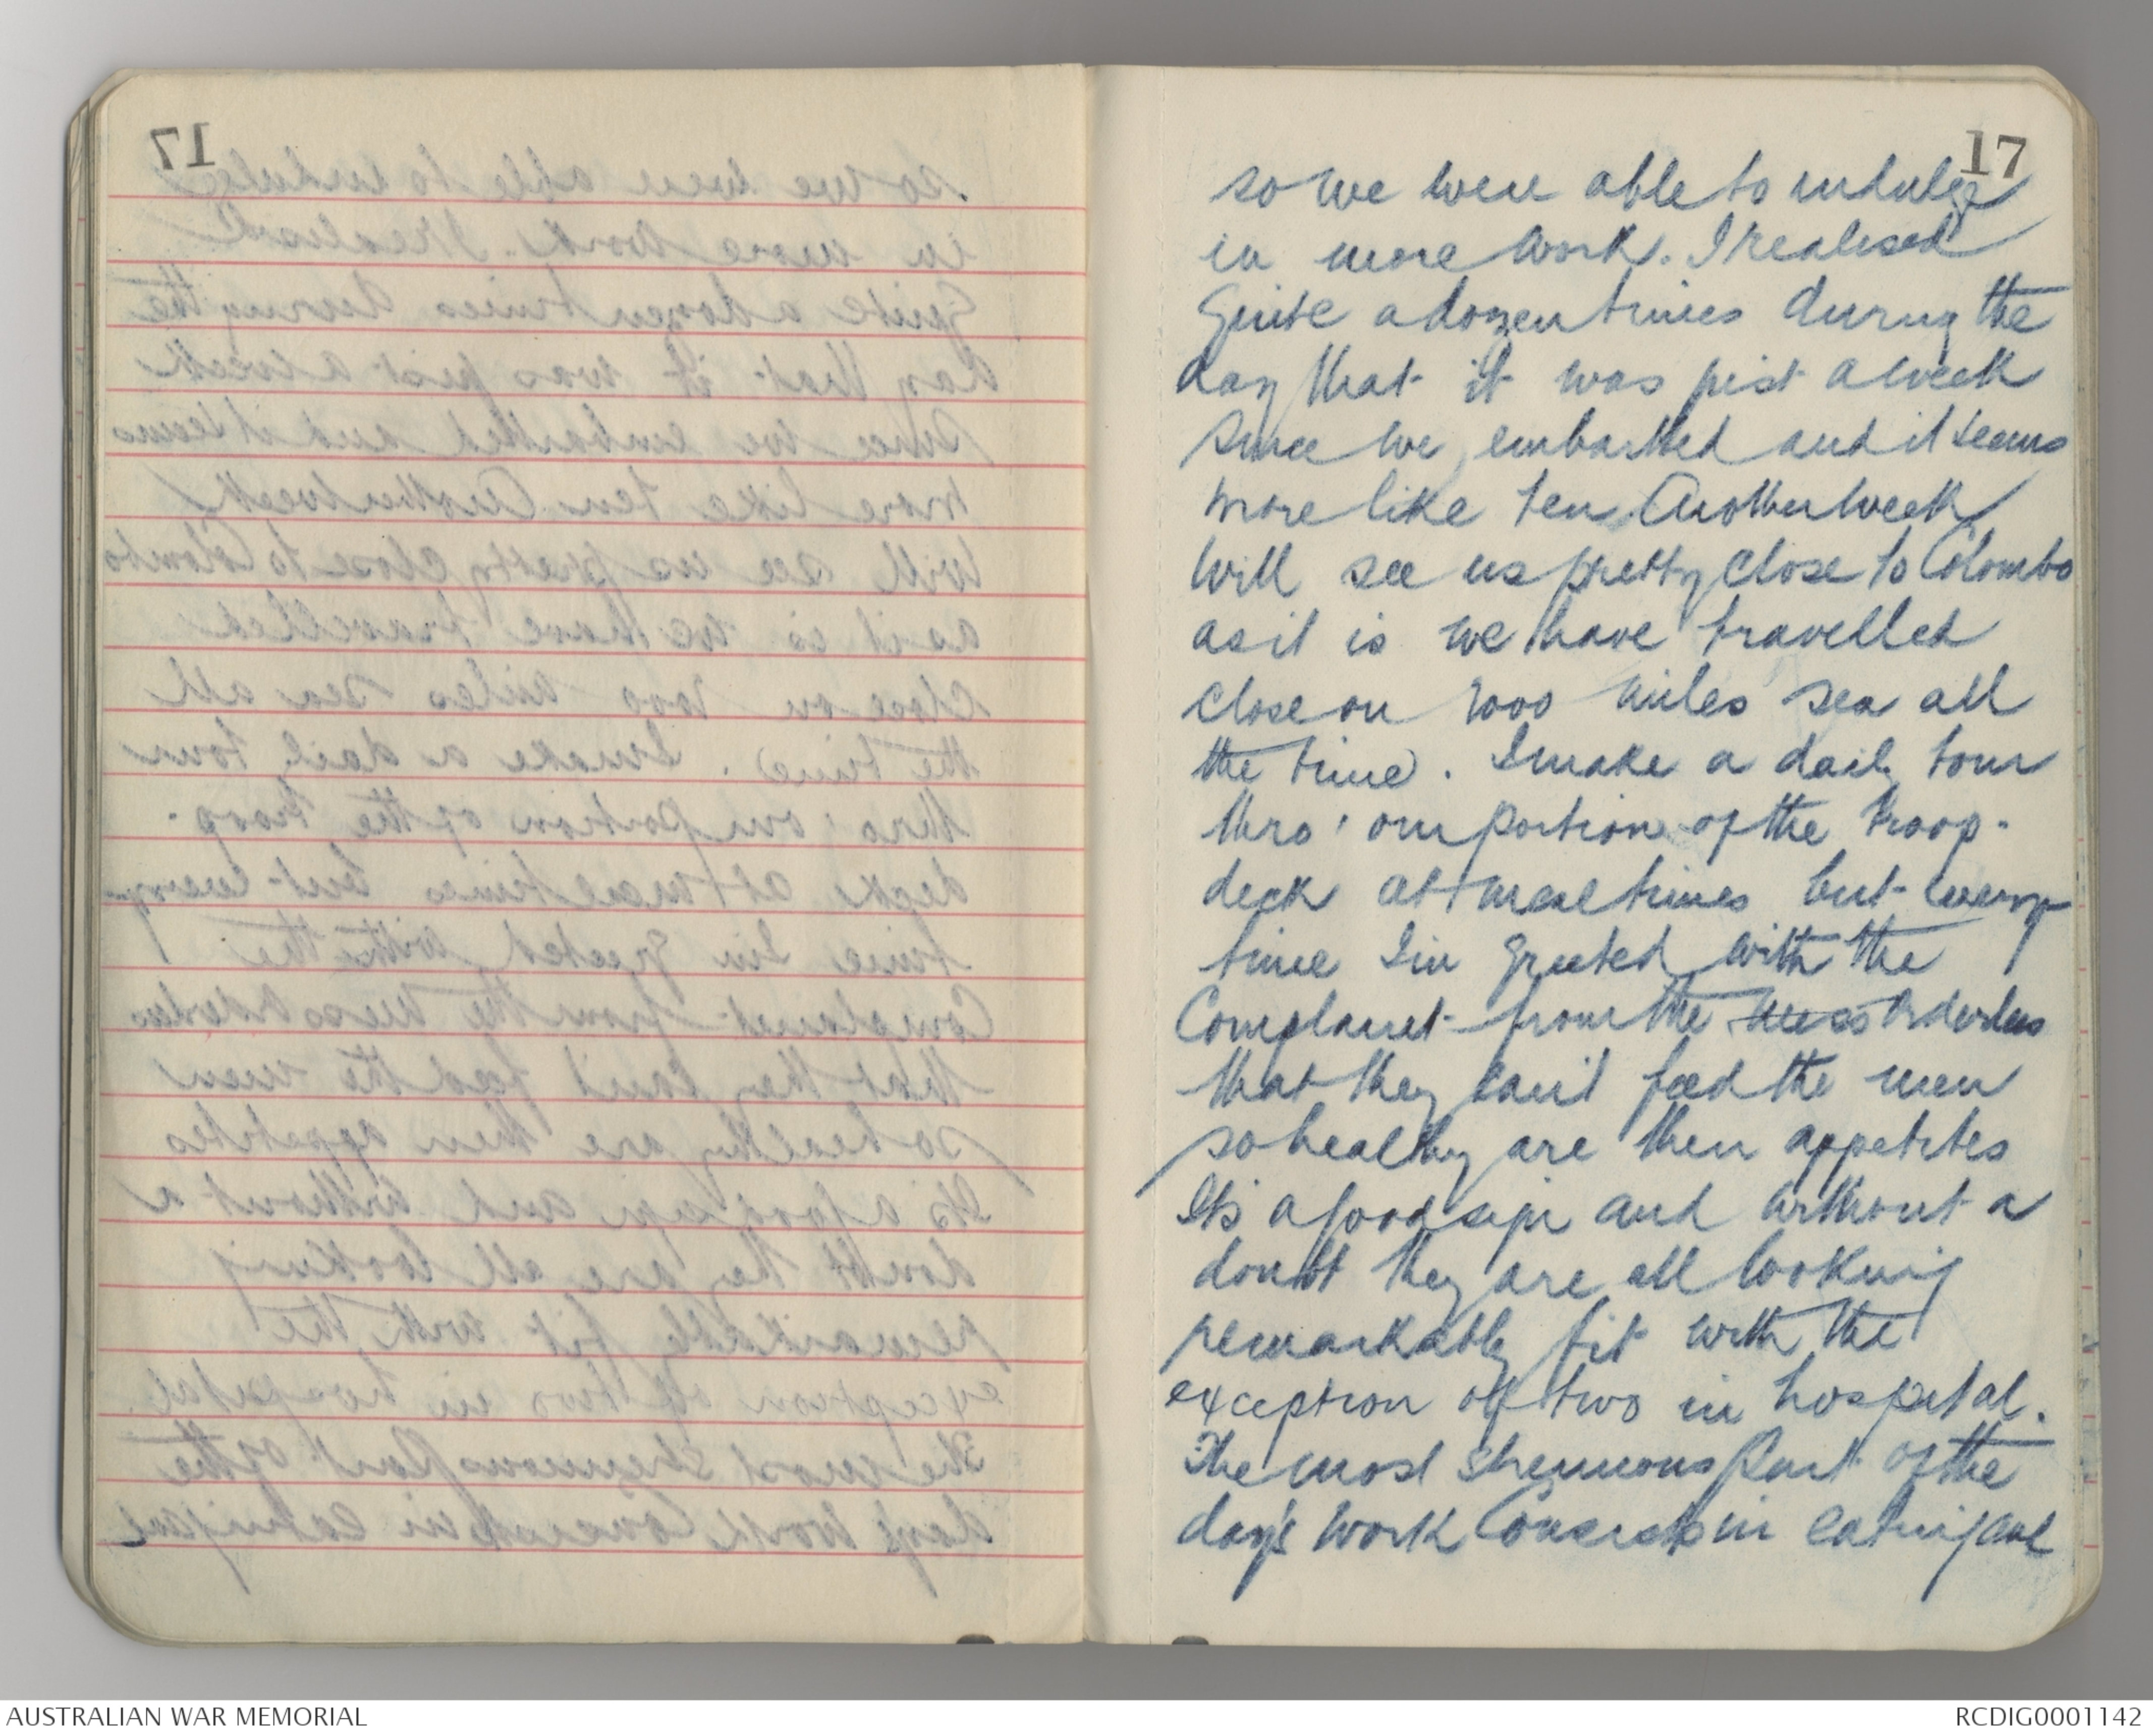 17
17
so we were able to indulge
in more work. I realised
Quite a dozen times during the
day that it was just a week
since we embarked and it seems
more like ten Another week
will see us pretty close to Colombo
as it is we have travelled
close on 2000 miles sea all
the time). I make a daily tour
thro' our portion of the troop-
deck at meal times but every
time I'm greeted with the
Complaint from the mess orderlies
that they can't feed the men
so healthy are their appetites
It's a good sign and without a
doubt they are all looking
remarkably fit with the
exception of two in hospital.
The most strenuous part of the
day's work Consists in eating and
AUSTRALIAN WAR MEMORIAL
RCDIG0001142